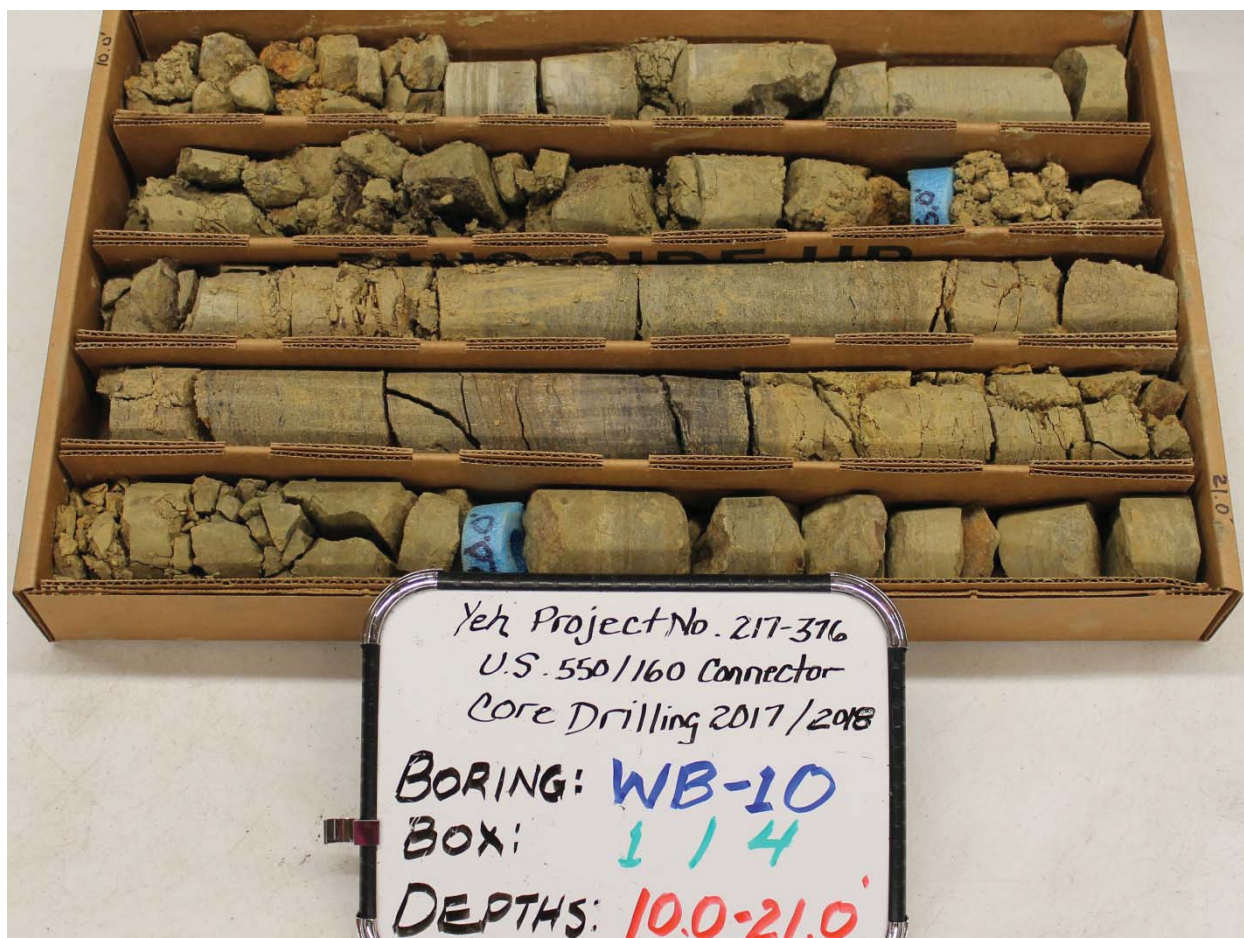 10.0'
THIS SIDE UP
21.0'
Yeh Project No. 217-376
U.S. 550/160 Connector
Core Drilling 2017/2018
BORING: WB-10
BOX: 1 / 4
DEPTHS: 10.0-21.0'